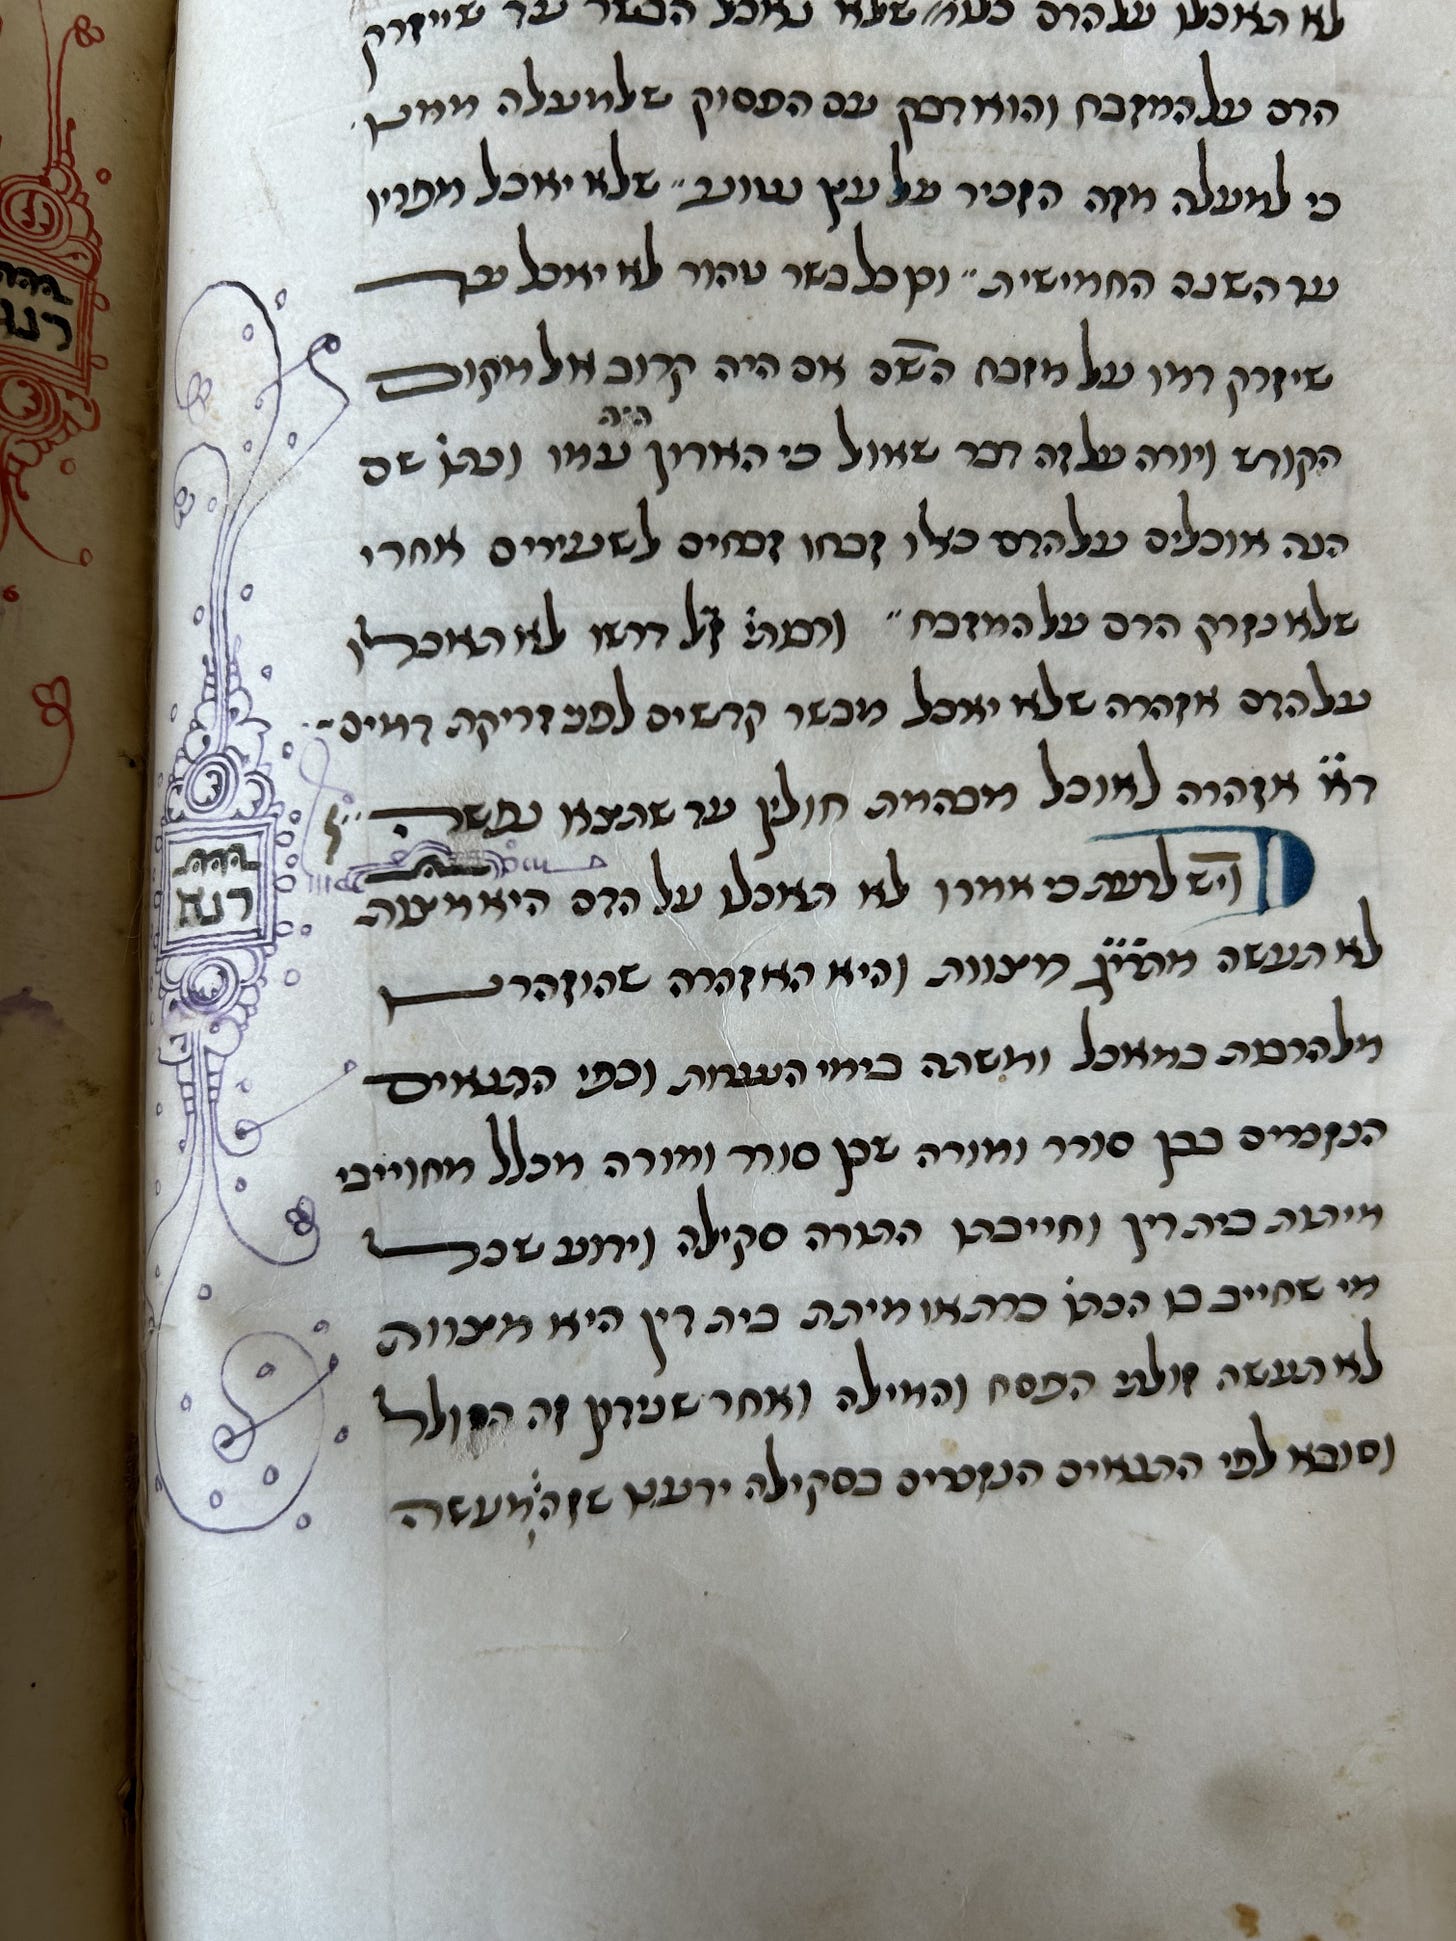 לא תאכלו על הדם כמו שלא נאכל הבשר עד שייזרק
הדם על המזבח והוא דבק עם הפסוק שלמעלה ממנו
כי למעלה מזה הזכיר כל עץ שיוגע״ שלא יאכל מפריו
עד השנה החמישית״ וכן כל בשר טהור לא יאכל עד
שיזרק דמו על מזבח השם אם היה קרוב אל מקום
הקודש ויורה על זה דבר שאול כי הארון היה עמו וכתו׳ שם
הנה אוכלים על הדם כאלו זבחו זבחים לשעירים אחרי
שלא נזרק הדם על המזבח״ ורבותי׳ ז״ל דרשו לא תאכלו
על הדם אזהרה שלא יאכל מבשר קדשים לפני זריקת דמים
ד״א אזהרה לאוכל מבהמת חולין עד שתצא נפשה
ויש לדעת כי אמרו לא תאכלו על הדם היא מצות
לא תעשה מתרי״ג מצוות והיא האזהרה שהוזהרנו
מלהרבות במאכל ומשתה בימי הנערות וכפי התנאים
הנזכרים בבן סורר ומורה שבן סורר ומורה מכלל מחוייבי
מיתות בית דין וחייבתו התורה סקילה וידוע שכל
מי שחייב בו הכתו׳ כרת או מיתת בית דין היא מצווה
לא תעשה זולתי הפסח והמילה ואחר שנדון זה הזולל
וסובא לפי התנאים הנזכרים בסקילה ידענו שזה מעשה
הרה
רנח